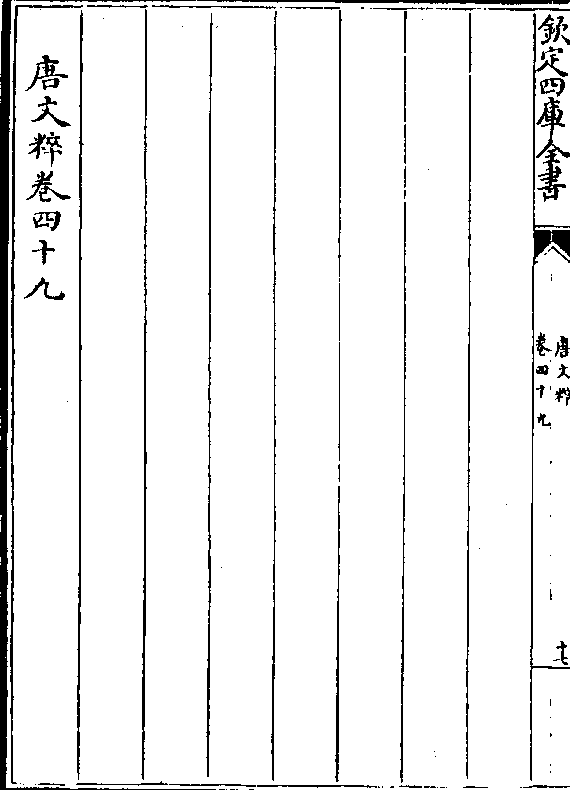 欽定四庫全書
唐文粹
卷四十九
十七
唐文粹卷四十九